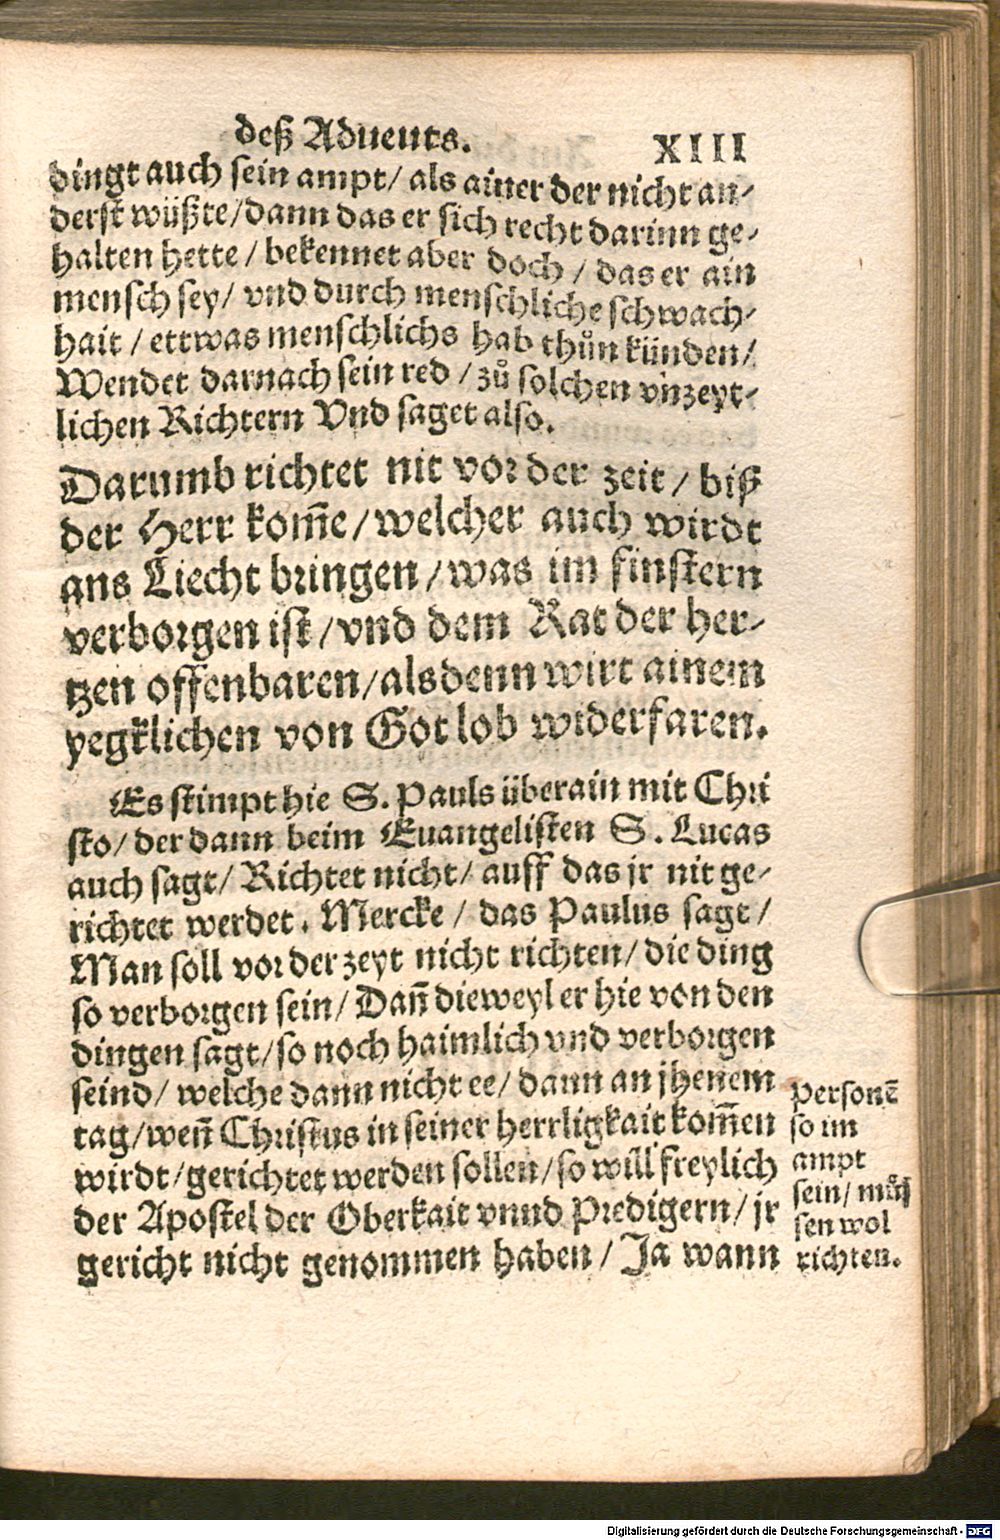 deß Aduents. XIII
dingt auch sein ampt/ als ainer der nicht an-
derst wüßte/dann das er sich recht darinn ge-
halten hette / bekennet aber doch / das er ain
mensch sey/ vnd durch menschliche schwach-
hait / ettwas menschlichs hab thůn künden/
Wendet darnach sein red / zů solchen vnzeyt-
lichen Richtern Vnd saget also.
Darumb richtet nit vor der zeit / biß
der Herr kom̃e/welcher auch wirdt
ans Liecht bringen /was im finstern
verborgen ist /vnd dem Rat der her-
tzen offenbaren/alsdenn wirt ainem
yegklichen von Got lob widerfaren.
Es stimpt hie S. Pauls überain mit Chri
sto/ der dann beim Euangelisten S. Lucas
auch sagt/ Richtet nicht/ auff das jr nit ge-
richtet werdet. Mercke / das Paulus sagt /
Man soll vor der zeyt nicht richten/ die ding
so verborgen sein/ Dañ dieweyl er hie von den
dingen sagt/so noch haimlich vnd verborgen
seind/ welche dann nicht ee/ dann an jhenem
tag/weñ Christus in seiner herrligkait kom̃en
wirdt/gerichtet werden sollen/so will freylich
der Apostel der Oberkait vnnd Predigern/ jr
gericht nicht genommen haben / Ja wann
Personẽ
so im
ampt
sein/ můs
sen wol
richten.
Digitalisierung gefördert durch die Deutsche Forschungsgemeinschaft - DFG